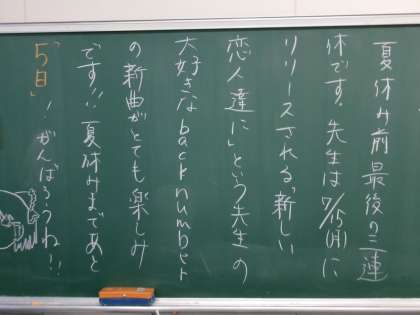 夏休み前最後の三連
休です。先生は7/15(月)に
リリースされる「新しい
恋人達に」という先生の
大好きなback number
の新曲がとても楽しみ
です!!夏休みまであと
「5日」!がんばろうね!!